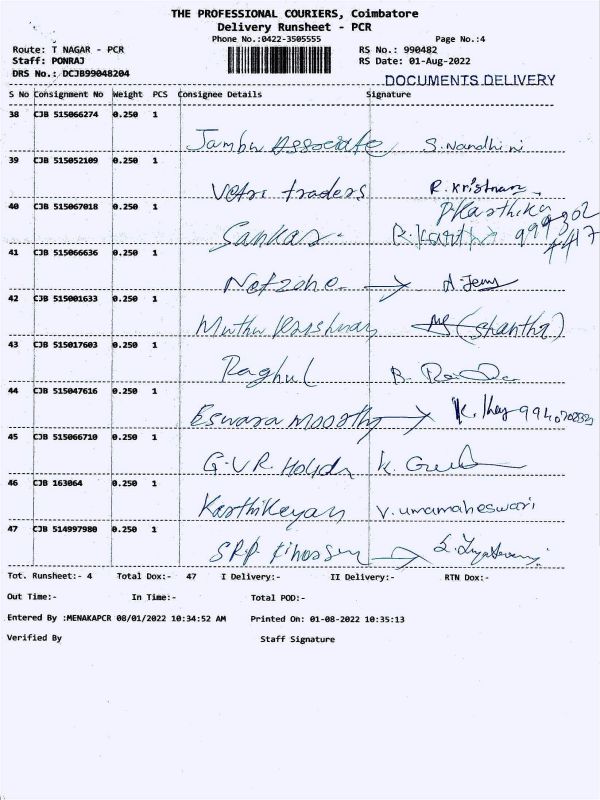 THE PROFESSIONAL COURIERS, Coimbatore
Delivery Runsheet - PCR
Phone No.:0422-3505555 Page No.:4
Route: T NAGAR - PCR RS No.: 990482
Staff: PONRAJ RS Date: 01-Aug-2022
DRS No.: DCJB99048204
DOCUMENTS DELIVERY
S No Consignment No Weight PCS Consignee Details Signature
38 CJB 515066274 0.250 1
Jambu Associate S. Nandhini
39 CJB 515052109 0.250 1
Vetri traders R. Krishnan
40 CJB 515067018 0.250 1 P Karthika
Sankar.
41 CJB 515066636 0.250 1
Netzone. → A. Jeny
42 CJB 515001633 0.250 1
Muthu Krishnan (Shantha)
43 CJB 515017603 0.250 1
Raghul B.
44 CJB 515047616 0.250 1
Eswara Moorthy → K.
45 CJB 515066710 0.250 1
G.V.R. K.
46 CJB 163064 0.250 1
Karthikeyan V. umamaheswari
47 CJB 514997980 0.250 1
S.R.P. →
Tot. Runsheet:- 4 Total Dox:- 47 I Delivery:- II Delivery:- RTN Dox:-
Out Time:- In Time:- Total POD:-
Entered By :MENAKAPCR 08/01/2022 10:34:52 AM Printed On: 01-08-2022 10:35:13
Verified By Staff Signature